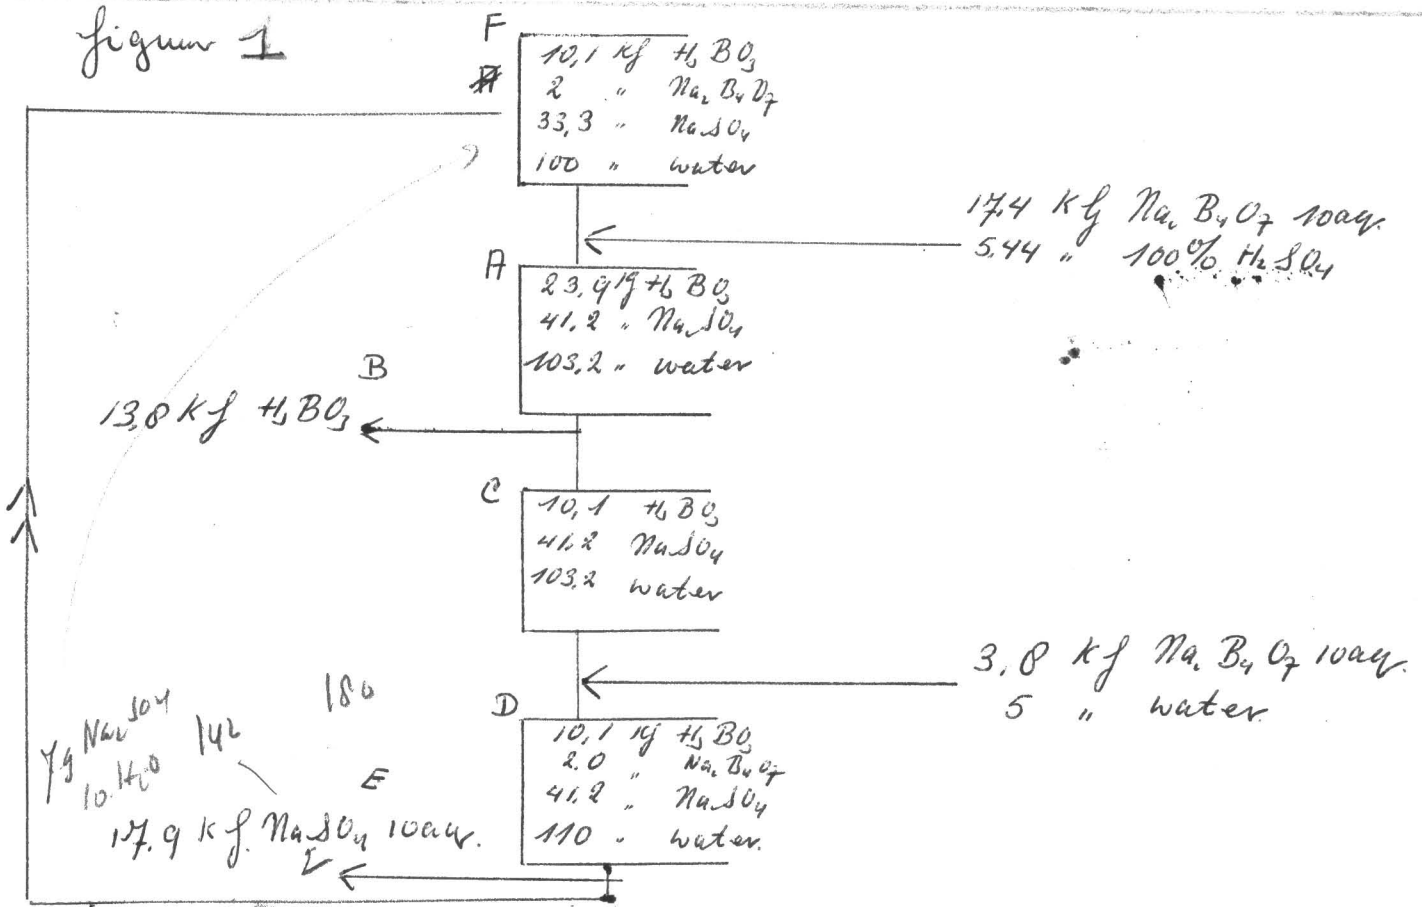 figuur 1
F
10,1 Kg H₃BO₃
2 " Na₂B₄O₇
33,3 " Na₂SO₄
100 " water
17,4 Kg Na₂B₄O₇ 10aq.
5,44 " 100% H₂SO₄
A
23,9 Kg H₃BO₃
41,2 " Na₂SO₄
103,2 " water
B
13,8 Kg H₃BO₃
C
10,1 H₃BO₃
41,2 Na₂SO₄
103,2 water
3,8 Kg Na₂B₄O₇ 10aq.
5 " water.
D
10,1 Kg H₃BO₃
2.0 " Na₂B₄O₇
41,2 " Na₂SO₄
110 " water.
Na₂SO₄
10.H₂O
142
180
E
17,9 Kg. Na₂SO₄ 10aq.